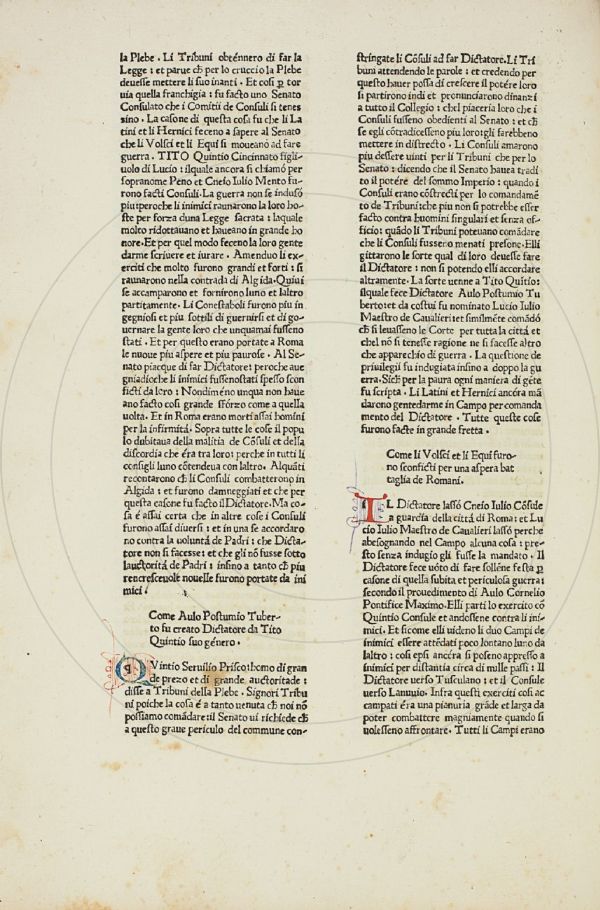 la Plebe. Li Tribuni obténnero di far la
Legge: et parue cħ per lo cruccio la Plebe
deuesse mettere li suo inanti. Et cosi ꝑ tor
uia quella franchigia: fu facto uno Senato
Consulato che i Comitii de Consuli si tenes
sino. La casone di questa cosa fu che li La
tini et li Hernici feceno a sapere al Senato
che li Volsci et li Equi si moueanó ad fare
guerra. TITO Quintio Cincinnato figli-
uolo di Lucio: ilquale ancora si chiamó per
sopranome Peno et Cneio Iulio Mento fu-
rono facti Consuli. La guerra non se indusó
piu: peroche li inimici raunarono la loro ho-
ste per forza duna Legge sacrata: laquale
molto ridottauano et haueano in grande ho
nore. Et per quel modo feceno la loro gente
darme scriuere et iurare. Amenduo li ex-
erciti che molto furono grandi et forti: si
raunarono nella contrada di Algida. Quiui
se accamparono et fornirono luno et laltro
partitamente. Li Conestaboli furono piu in
gegniosi et piu sottili di guernirsi et di go-
uernare la gente loro che unquamai fusseno
stati. Et per questo erano portate a Roma
le nuoue piu aspere et piu paurose. Al Se-
nato piacque di far Dictatore: peroche aue
gniadioche li inimici fusseno stati spesso scon
ficti da loro: Nondiméno unqua non haue
ano facto cosi grande sfórzo come a quella
uolta. Et in Roma erano morti assai homini
per la infirmitá. Sopra tutte le cose il popu
lo dubitaua della malitia de Cõsuli et della
discordia che éra tra loro: perche in tutti li
consigli luno cõtendeua con laltro. Alquãti
recontarono cħ li Consuli combatterono in
Algida: et furono damneggiati et che per
questa casone fu facto il Dictatore. Ma co-
sa é assai certa che in altre cose i Consuli
furono assai diuersi: et in una se accordaro
no contra la voluntá de Padri: che Dicta-
tore non si facesse: et che gli nõ fusse sotto
lauctoritá de Padri: insino a tanto cħ piu
rencresceuole nouelle furono portate da ini
mici.
Come Aulo Postumio Tuber-
to fu creato Dictatore da Tito
Quintio suo género.
QVintio Seruilio Prisco: homo di gran
de prezo et di grande auctoritade:
disse a Tribuni della Plebe. Signori Tribu
ni poiche la cosa é a tanto uenuta cħ noi nõ
possiamo comãdare: il Senato ui richiede cħ
a questo graue periculo del commune con-
stringate li Cõsuli ad far Dictatore. Li Tri
buni attendendo le parole: et credendo per
questo hauer possa di crescere il potére loro
si partirono indi et pronunciarono dinanzi
a tutto il Collegio: chel piaceria loro che i
Consuli fusseno obedienti al Senato: et cħ
se egli cõtradicesseno piu loro: gli farebbeno
mettere in distrecto. Li Consuli amarono
piu dessere uinti per li Tribuni che per lo
Senato: dicendo che il Senato hauea tradi
to il potére del sommo Imperio: quando i
Consuli erano cõstrecti per lo comandamẽ
to de Tribuni: che piu non si potrebbe esser
facto contra huomini singulari et senza of-
ficio: quãdo li Tribuni poteuano comãdare
che li Consuli fusseno menati presone. Elli
gittarono le sorte qual di loro deuesse fare
il Dictatore: non si potendo elli accordare
altramente. La sorte uenne a Tito Quitio:
ilquale fece Dictatore Aulo Postumio Tu
berto: et da costui fu nominato Lucio Iulio
Maestro de Caualieri: et similmẽte comãdó
cħ si leuasseno le Corte per tutta la cittá et
chel nõ si tenesse ragione ne si facesse altro
che apparechio di guerra. La questione de
priuilegii fu indugiata insino a doppo la gu
erra. Sicħ per la paura ogni maniera di gẽte
fu scripta. Li Latini et Hernici ancóra mã
darono gentedarme in Campo per comanda
mento del Dictatore. Tutte queste cose
furono facte in grande fretta.
Come li Volsci et li Equi furo-
no sconficti per una aspera bat
taglia de Romani.
IL Dictatore lassó Cneio Iulio Cõsule
a guardia della cittá di Roma: et Lu
cio Iulio Maestro de Caualieri lassó perche
abesognando nel Campo alcuna cosa: pre-
sto senza indugio gli fusse la mandato. Il
Dictatore fece uóto di fare sollẽne festa ꝑ
casone di quella subita et periculosa guerra:
secondo il prouedimento di Aulo Cornelio
Pontifice Maximo. Elli parti lo exercito cõ
Quintio Consule et andossene contra li ini-
mici. Et sicome elli uideno li duo Campi de
inimici essere attédati poco lontano luno da
laltro: cosi epsi ancóra si poseno appresso a
inimici per distantia circa di mille passi: Il
Dictatore uerso Tusculano: et il Consule
uerso Lanuuio. Infra questi exerciti cosi ac
campati éra una pianuria grãde et larga da
poter combattere magniamente quando si
uolesseno affrontare. Tutti li Campi erano